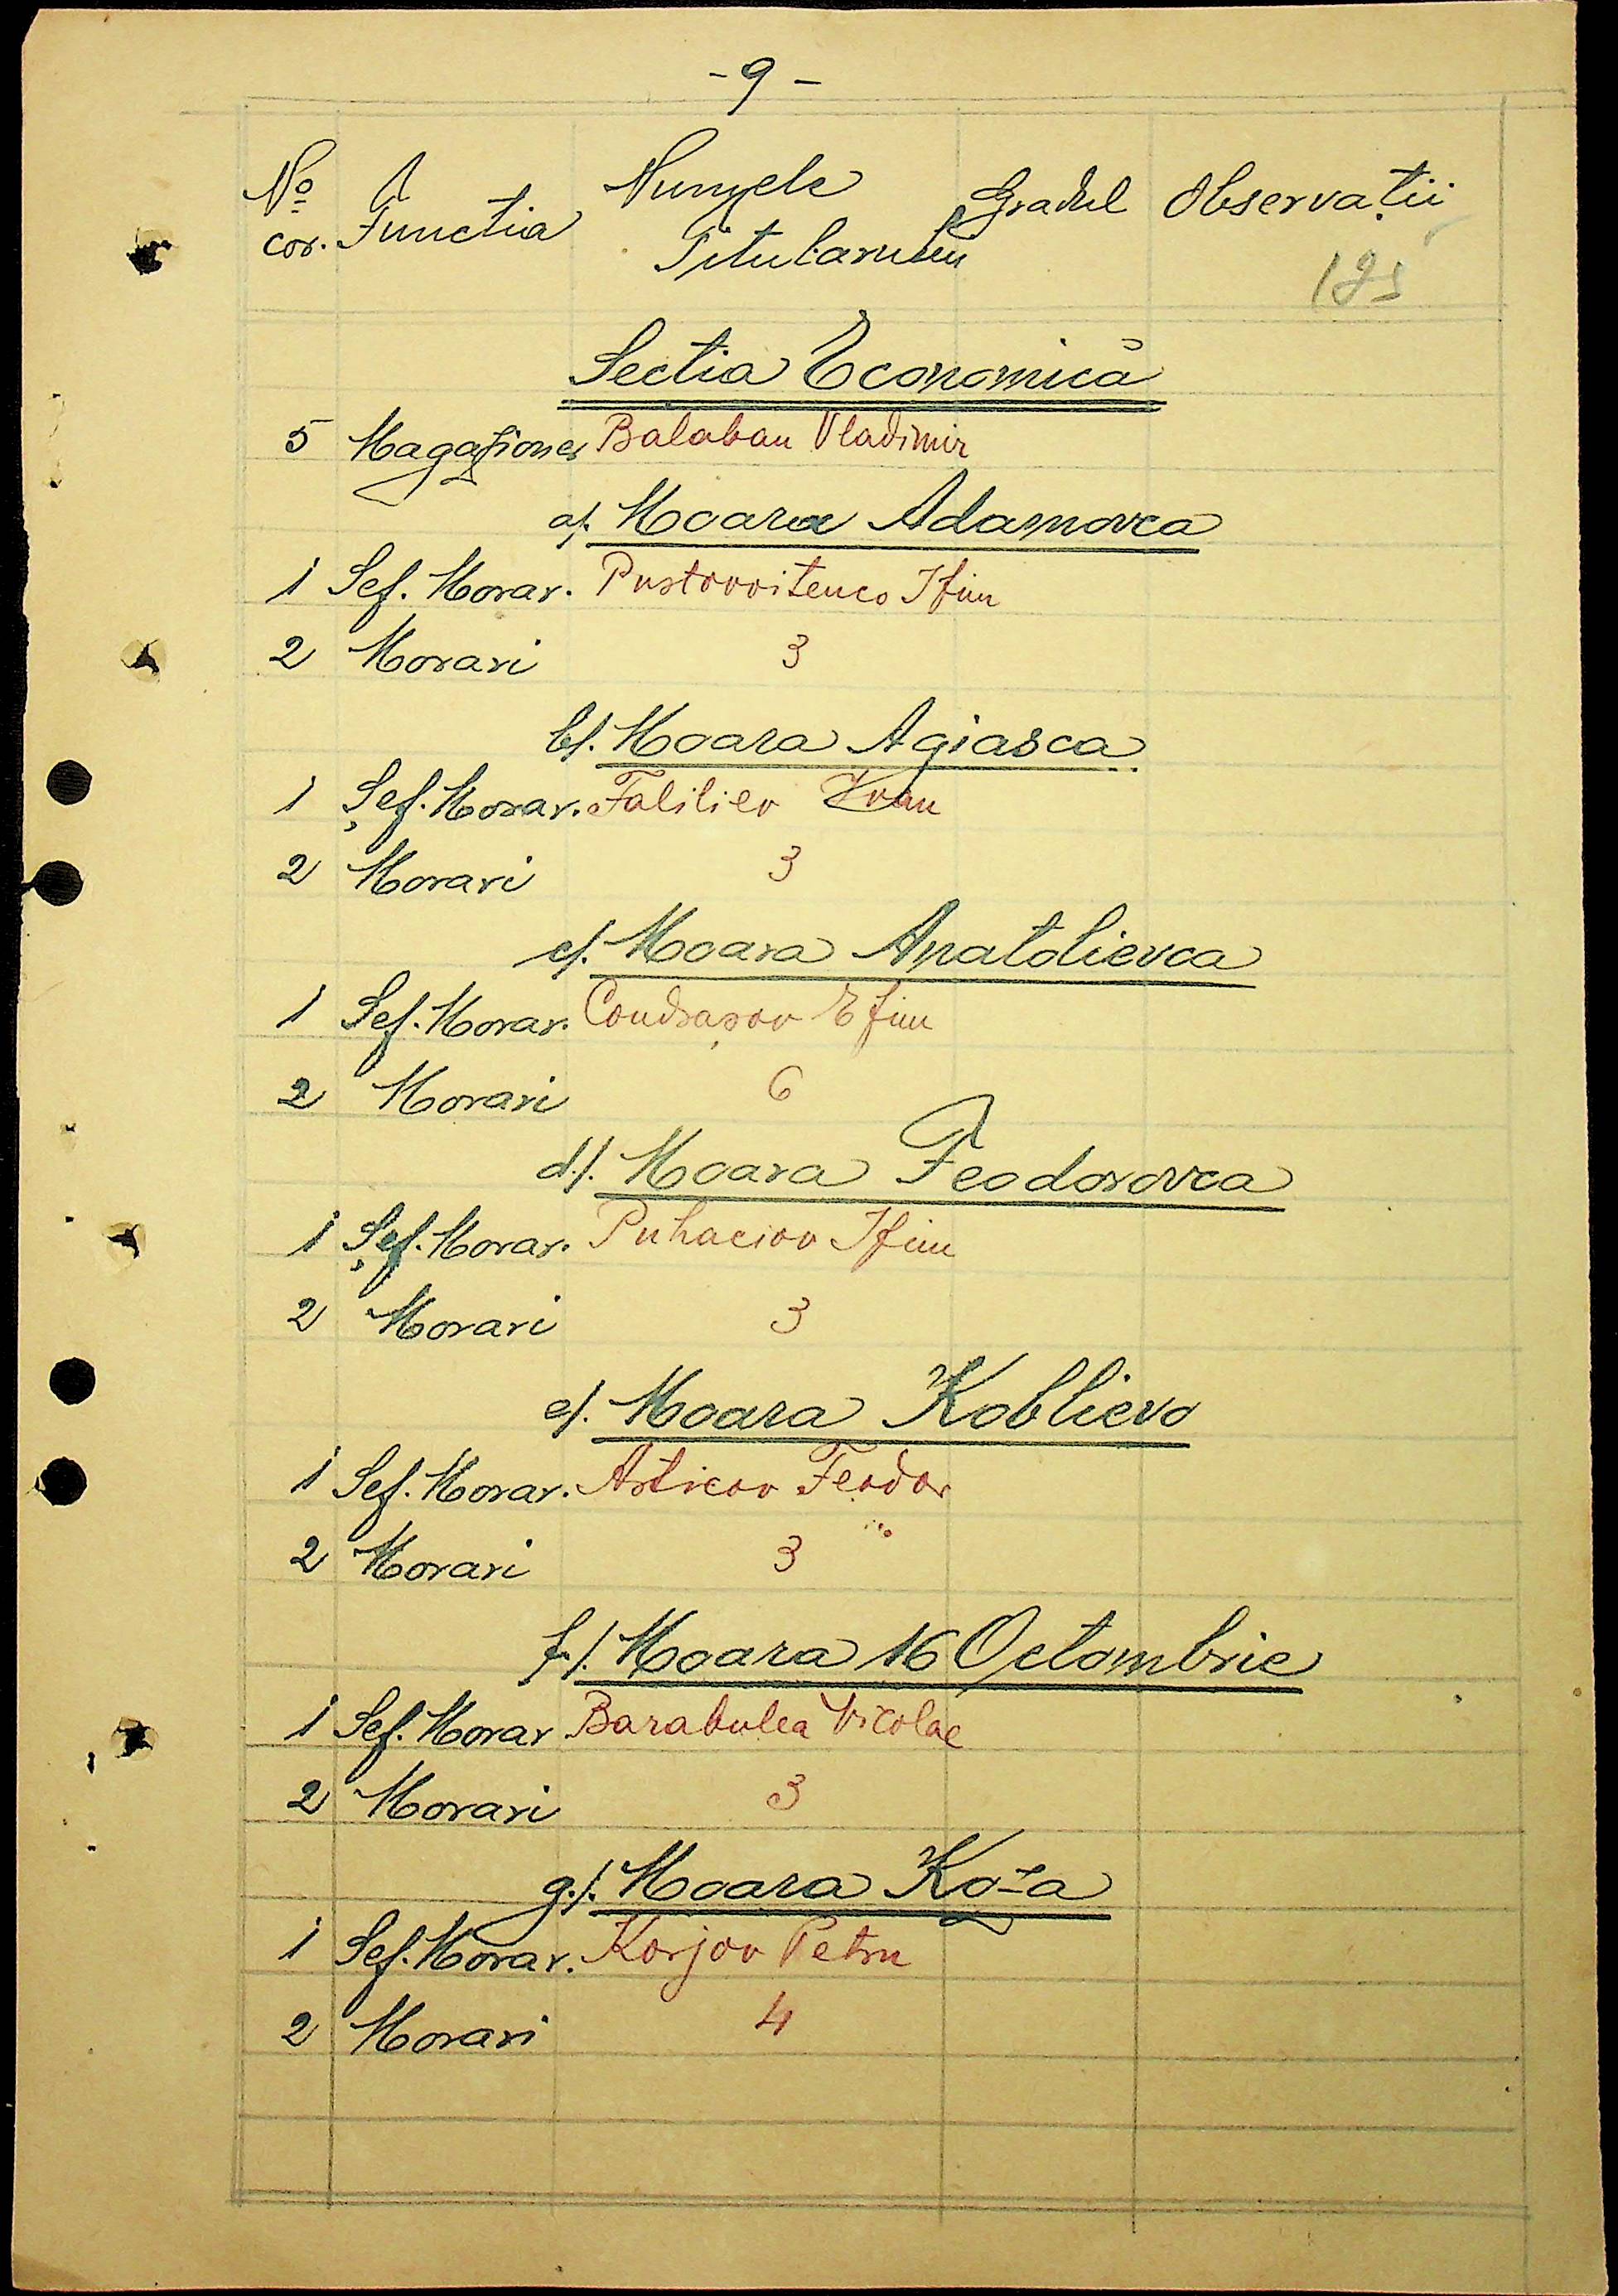 - 9 -
No cor. Functia Numele Titularului Gradul Observaţii
Sectia Economică
5 Magazioner Balaban Vladimir
a/. Moara Adamovca
1 Sef. Morar. Pustovoitenco Ifim
2 Morari 3
b/. Moara Agiasca
1 Şef. Morar. Faliliev Ivan
2 Morari 3
c/. Moara Anatolievca
1 Sef. Morar. Condraşov Efim
2 Morari 6
d./. Moara Feodorovca
1 Şef. Morar. Puhaciov Ifim
2 Morari 3
e/. Moara Koblievo
1 Sef. Morar. Articov Feodor
2 Morari 3
f./. Moara 16 Octombrie
1 Sef. Morar Barabulea Nicolae
2 Morari 3
g./. Moara
1 Sef. Morar. Korjov Petru
2 Morari 4